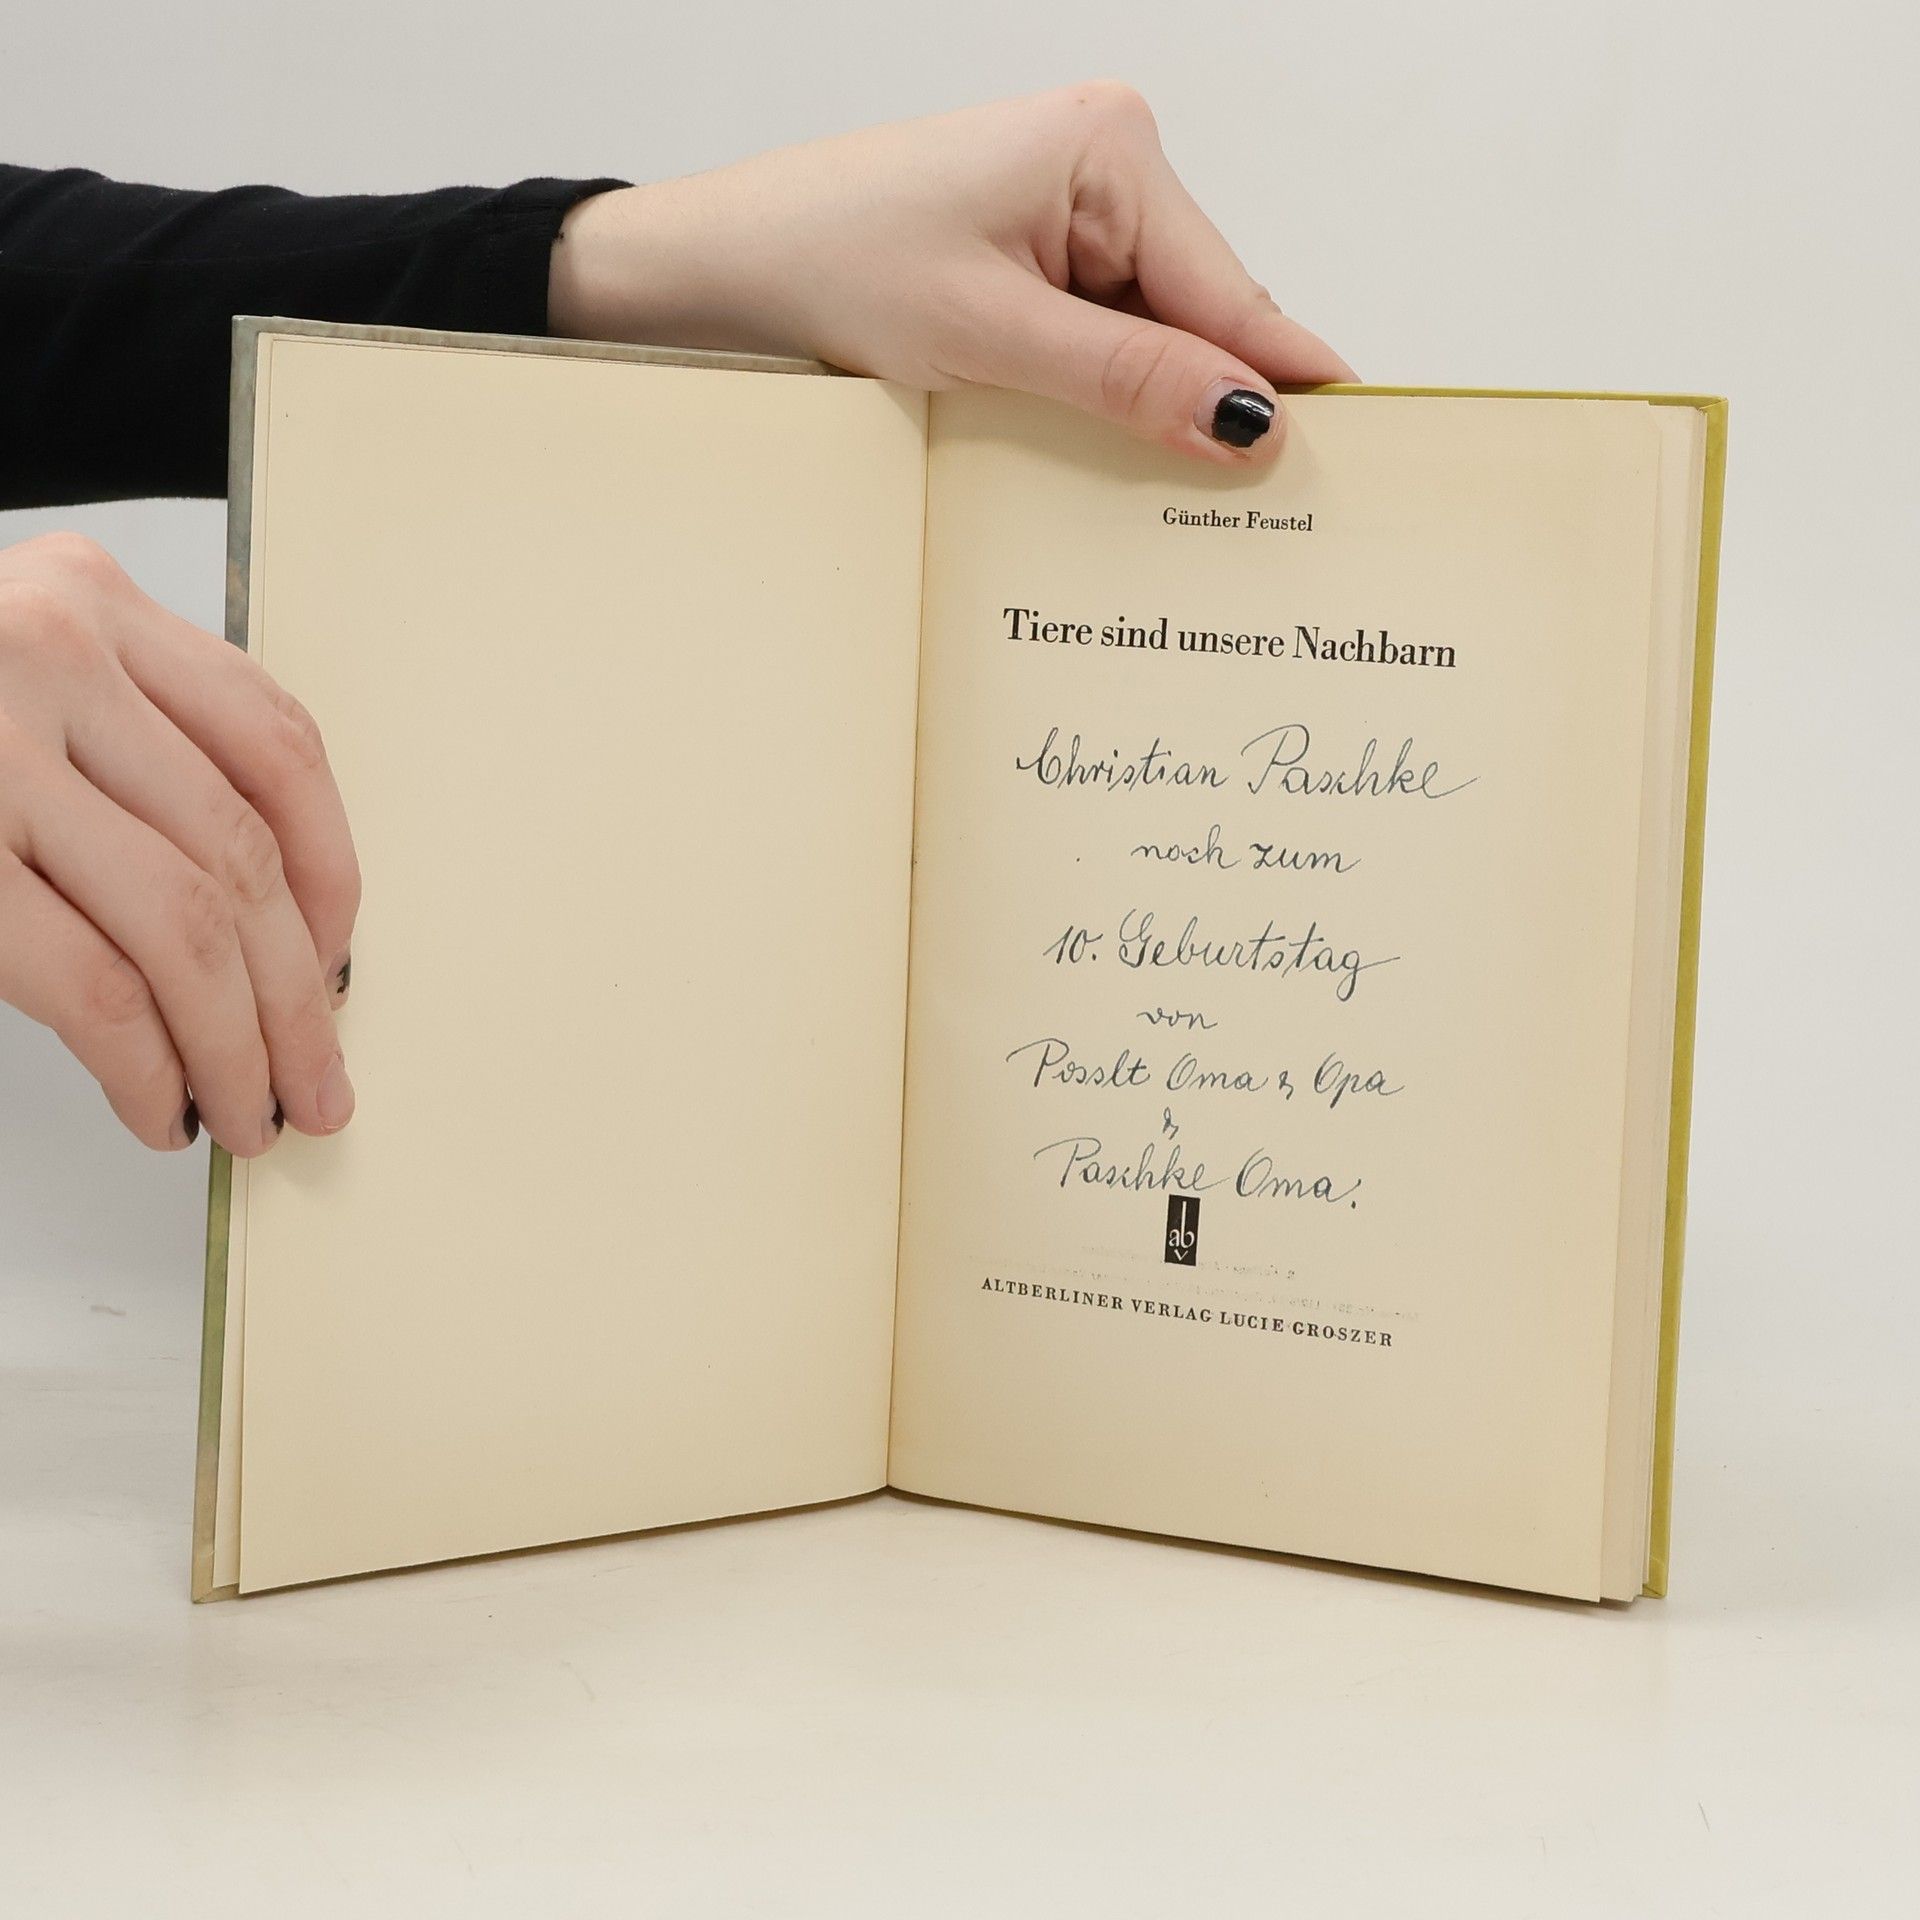 Günther Feustel
Tiere sind unsere Nachbarn
Christian Paschke
noch zum
10. Geburtstag
von
Posslt Oma & Opa
&
Paschke Oma.
ab
v
ALTBERLINER VERLAG LUCIE GROSZER